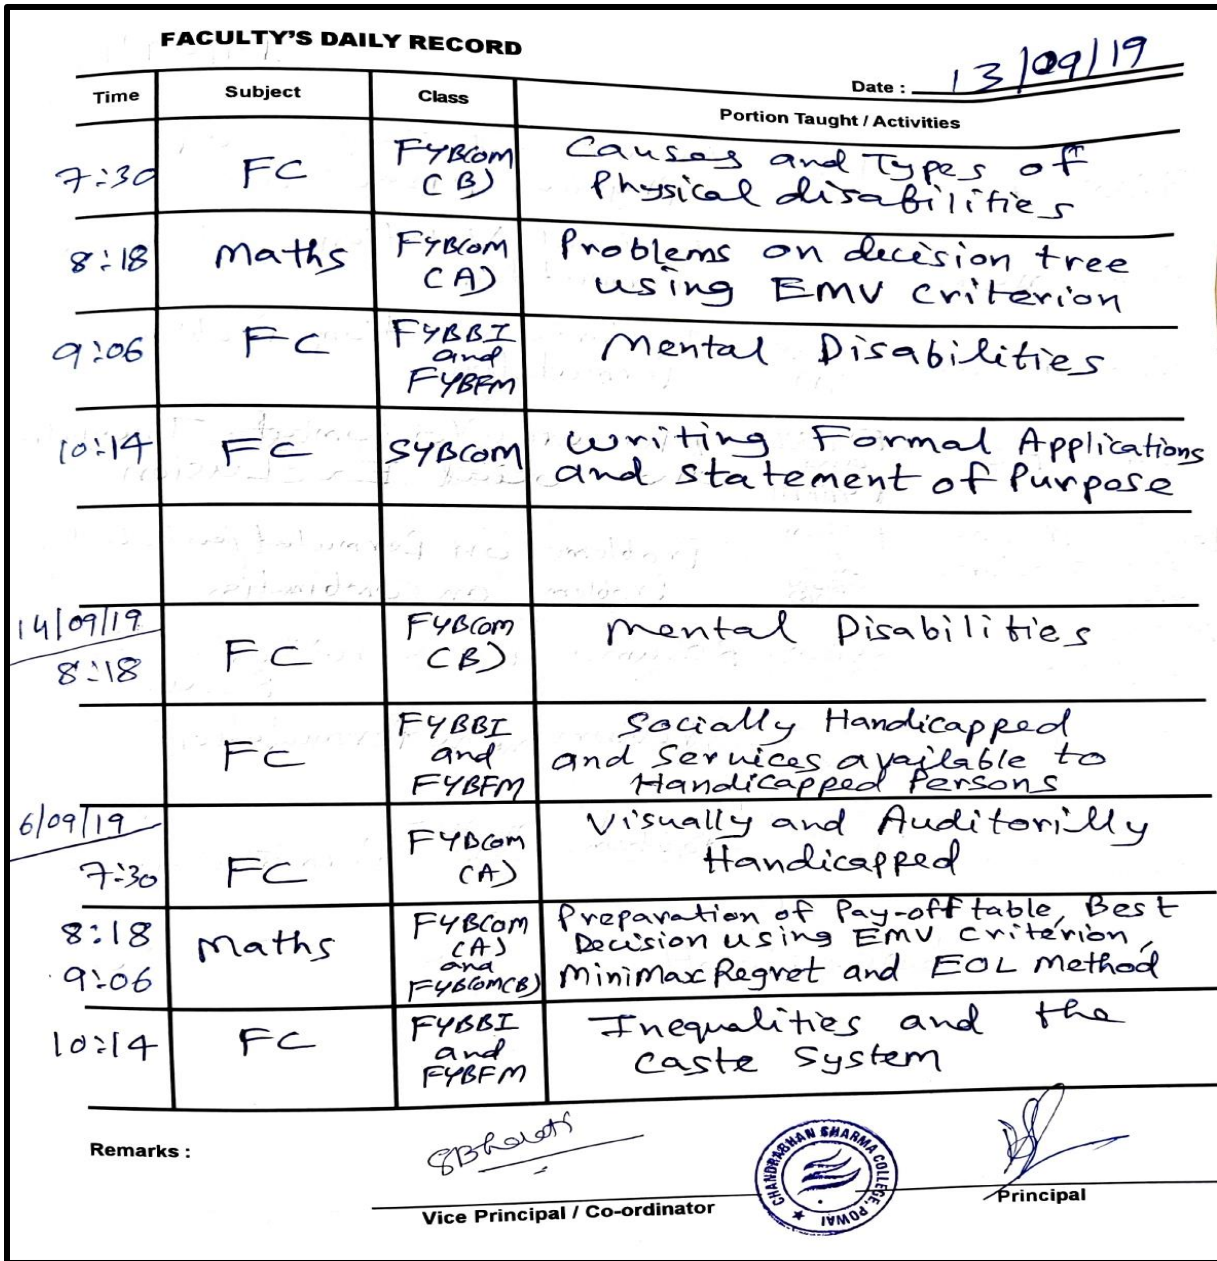 FACULTY'S DAILY RECORD
Date : 13/09/19
Time Subject Class Portion Taught / Activities
7:30 FC FYBCOM (B) Causes and Types of
Physical disabilities
8:18 Maths FYBCOM (A) Problems on decision tree
using EMV criterion
9:06 FC FYBBI and FYBFM Mental Disabilities
10:14 FC SYBCOM Writing Formal Applications
and Statement of Purpose
14/09/19
8:18 FC FYBCOM (B) Mental Disabilities
FC FYBBI and FYBFM Socially Handicapped
and Services available to
Handicapped Persons
6/09/19
7:30 FC FYBCOM (A) Visually and Auditorilly
Handicapped
8:18 Maths FYBCOM (A) and FYBCOM(B) Preparation of Pay-off table, Best
Decision using EMV criterion,
9:06 MiniMax Regret and EOL Method
10:14 FC FYBBI and FYBFM Inequalities and the
Caste System
Remarks :
Vice Principal / Co-ordinator
CHANDRABHAN SHARMA COLLEGE, POWAI
Principal